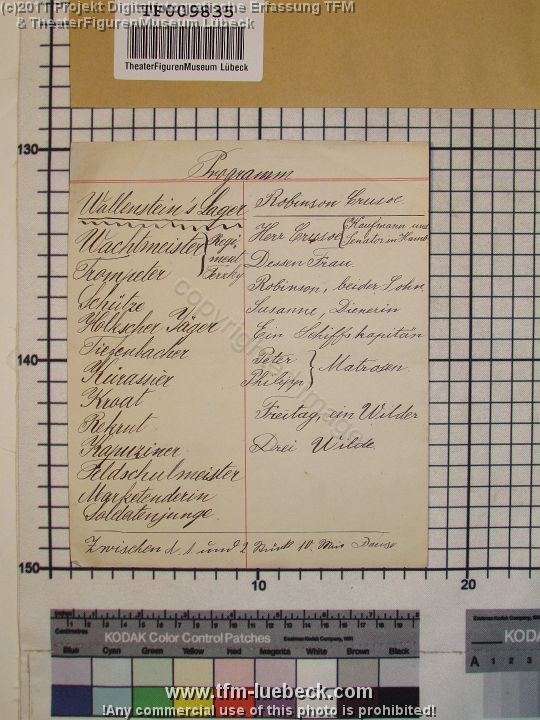 (c)2011 Projekt Digitalfotografische Erfassung TFM
& TheaterFigurenMuseum Lübeck
TF009835
TheaterFigurenMuseum Lübeck
Programm
Wallenstein's Lager
Wachtmeister } Regi
Trompeter } ment Terzky
Schütze
Holkscher Jäger
Tiefenbacher
Kürassier
Kroat
Rekrut
Kapuziner
Feldschulmeister
Marketenderin
Soldatenjunge.
Robinson Crusoe
Herr Crusoe { Kaufmann und
Senator in Hamb
Dessen Frau.
Robinson, beider Sohn
Susanne, Dienerin
Ein Schiffskapitän
Peter } Matrosen.
Philipp }
Freitag, ein Wilder
Drei Wilde
Zwischen d. 1 und 2 Stück 10. Min Pause
130
140
150
10
20
KODAK Color Control Patches
Blue Cyan Green Yellow Red Magenta White Brown Black
KODAK
A 1 2 3
www.tfm-luebeck.com
!Any commercial use of this photo is prohibited!